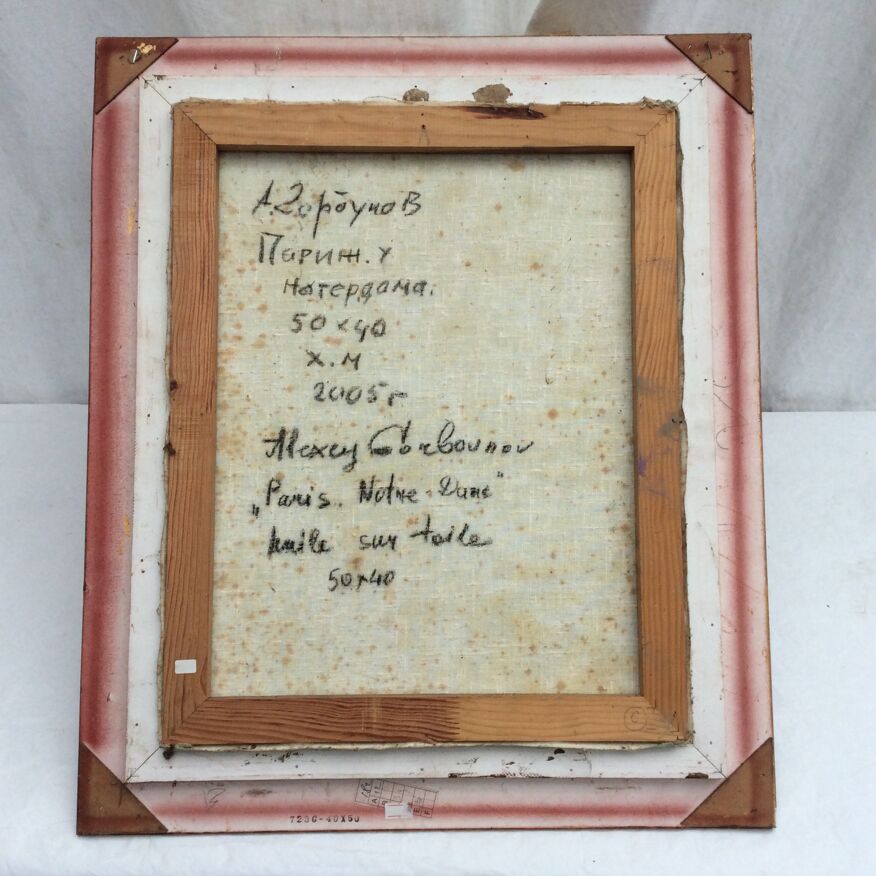 А. Горбунов
Париж. у
Нотердама.
50x40
х.м
2005г
Alexey Gorbounov
„Paris. Notre-Dame"
huile sur toile
50x40
©
723G-40X50